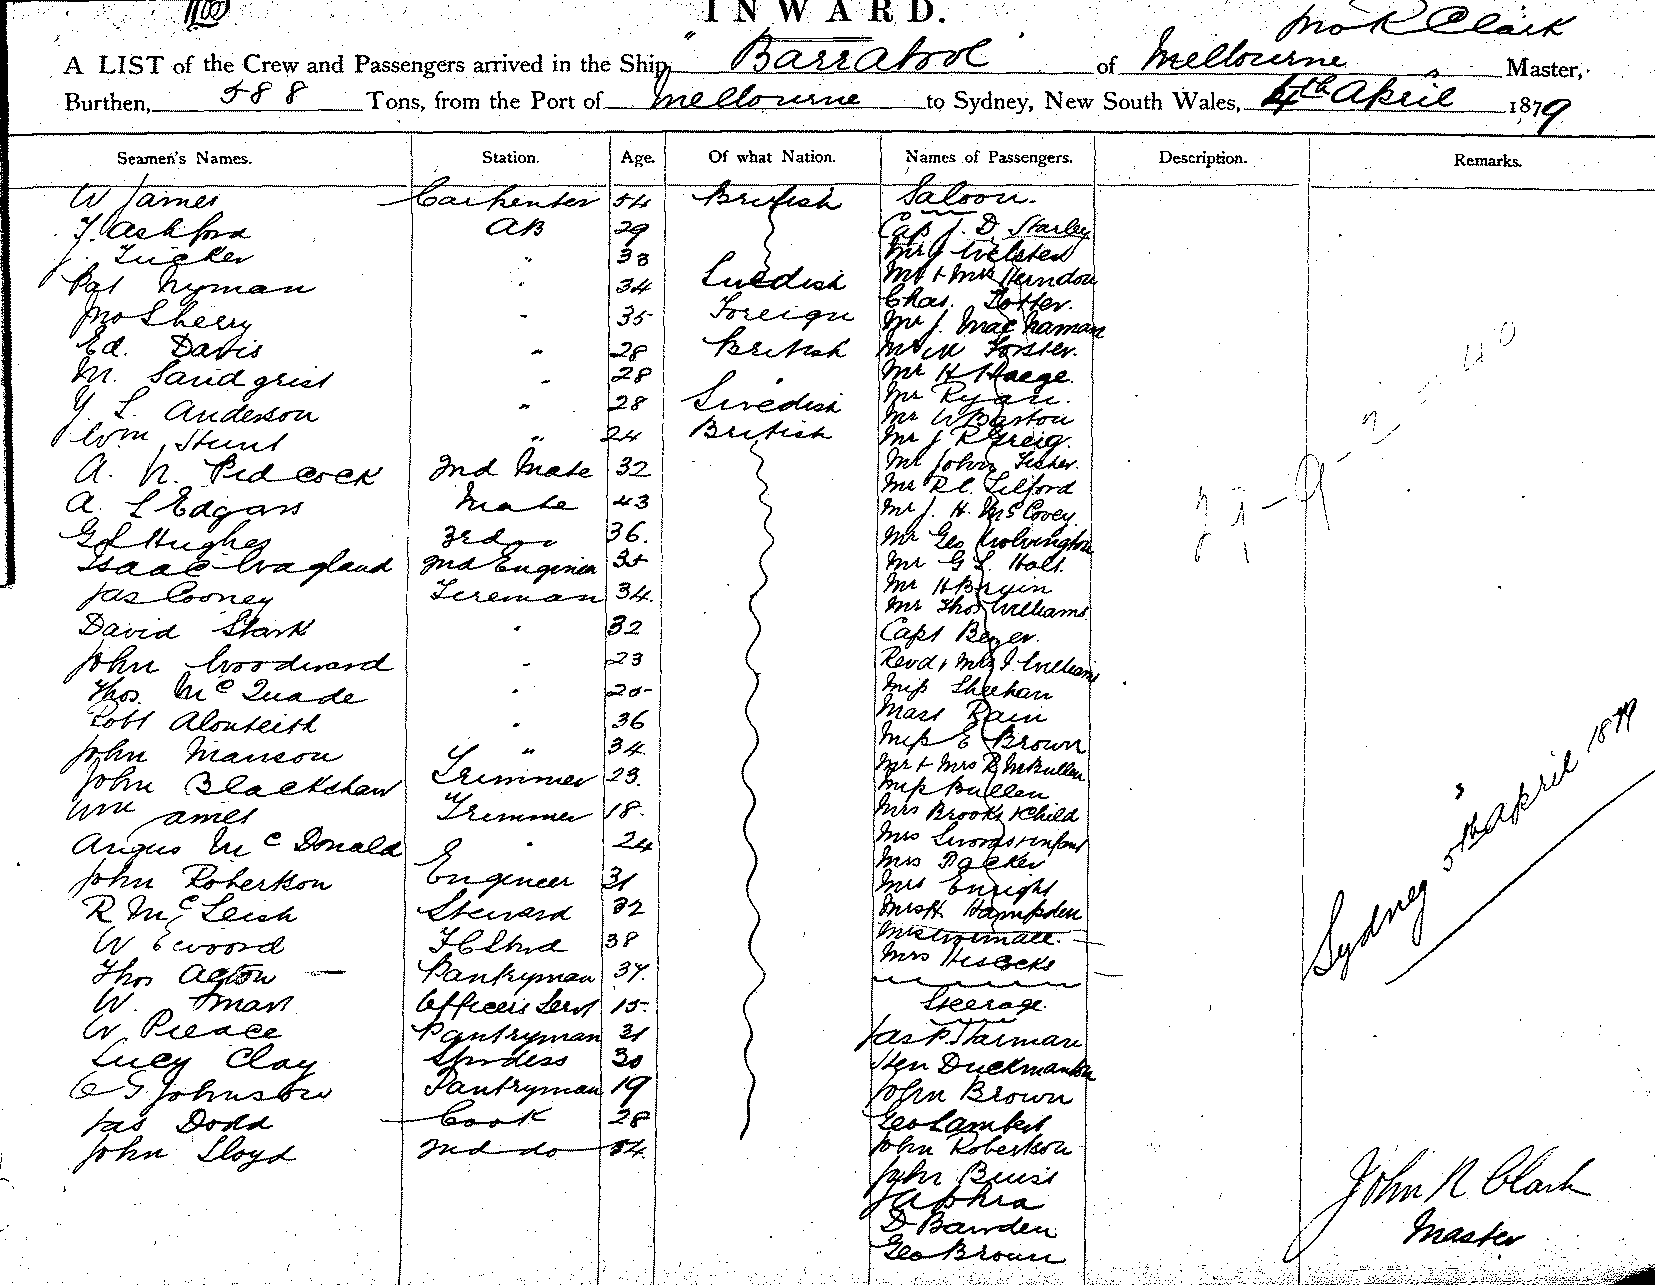 INWARD.
Jno R Clark
A LIST of the Crew and Passengers arrived in the Ship, "Barrabool" of Melbourne Master,
Burthen, 588 Tons, from the Port of Melbourne to Sydney, New South Wales, 4th April 1879
Seamen's Names. Station. Age. Of what Nation. Names of Passengers. Description. Remarks.
W James Carpenter 54 British Saloon.
T. Ashford AB 29
J. Tucker " 33
Pat Nyman " 34 Swedish
Jno Sherry " 35 Foreign
Ed. Davis " 28 British
M. Sandgrist " 28
L. Anderson " 28 Swedish
Wm Hunt " 24 British
A. N. Pidcock 2nd Mate 32
A. L Edgars Mate 43
G L Hughes 3rd do 36.
Isaac Wagland 2nd Engineer 35
Jas Cooney Fireman 34.
David Stark " 32
John Woodward " 23
Thos. McQuade " 25
Robt Alonteith " 36
John Manson " 34.
John Blackshaw Trimmer 23.
Wm James Trimmer 18.
Angus McDonald " 24
John Robertson Engineer 31
R McLeish Steward 32
W Ewoord 38
Thos Acton Pantryman 37.
W. Man Officers Servt 15.
W. Pierce Pantryman 31
Lucy Clay Stwdess 30
Johnston Pantryman 19
Jas Dodd Cook 28
John Lloyd 2nd do 54.
Cap J. D. Starley
Mr Welsten
Mr + Mrs Herndon
Chas. Potter.
Mr J. MacNamara
Mr M Forster.
Mr H Haege.
Mr Ryan.
Mr W Barton
Mr J R Greig.
Mr John Fisher.
Mr R C. Tilford
Mr J. H. McCovey.
Mr Geo Wolvington
Mr G L. Holt.
Mr H Bryin
Mr Thos Williams
Capt Beyer.
Revd + Mrs J. Williams
Miss Sheehan
Mast Bain
Miss E Brown
Mr + Mrs R McMullen
Miss Bullen
Mrs Brooks + Child
Mrs Swords + infant
Mrs Packer
Mrs Enright
Mrs H Hampden
Mrs Hiscocks
Steerage.
Jas P. Tharman
Hen Duckmanton
John Brown
Geo Lambert
John Robertson
John Buist
D Bawden
Geo Brown
Sydney 5th April 1879
John R Clark
Master